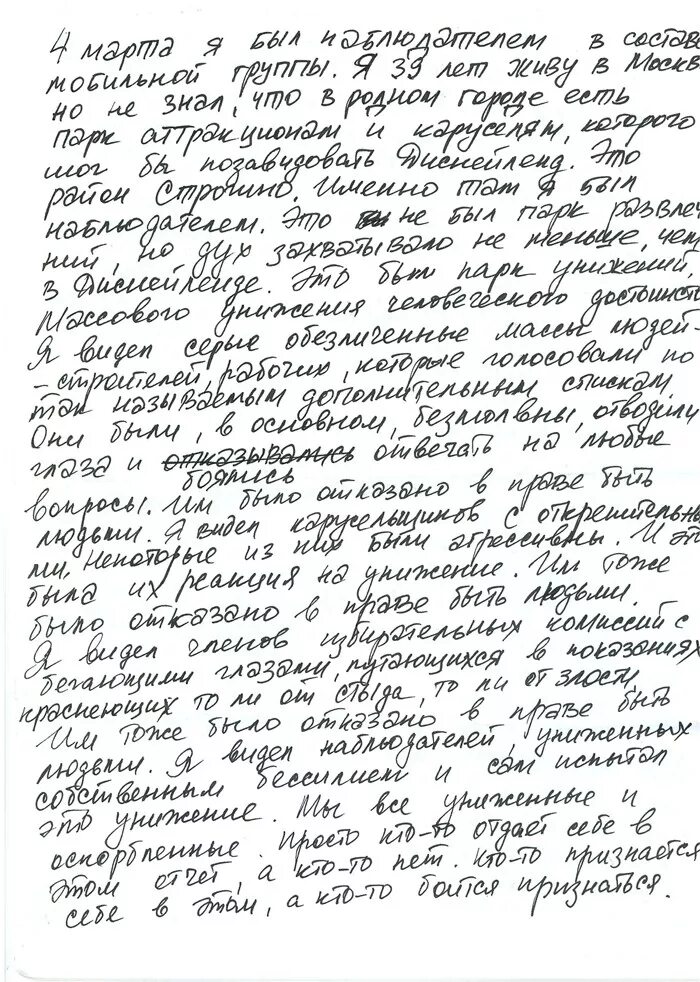 4 марта я был наблюдателем в составе
мобильной группы. Я 39 лет живу в Москв
но не знал, что в родном городе есть
парк аттракционам и каруселям, которого
мог бы позавидовать Диснейленд. Это
район Строгино. Именно там я был
наблюдателем. Это не был парк развлече
ний, но дух захватывало не меньше, чем
в Диснейленде. Это был парк унижений.
Массового унижения человеческого достоинст
Я видел серые обезличенные массы людей-
-строителей, рабочих, которые голосовали по
так называемым дополнительным спискам.
Они были, в основном, безмолвны, отводили
глаза и отказывались отвечать на любые
боялись
вопросы. Им было отказано в праве быть
людьми. Я видел карусельщиков с открепительны
ми. Некоторые из них были агрессивны. И это
была их реакция на унижение. Им тоже
было отказано в праве быть людьми.
Я видел членов избирательных комиссий с
бегающими глазами, путающихся в показаниях
краснеющих то ли от стыда, то ли от злости
Им тоже было отказано в праве быть
людьми. Я видел наблюдателей, униженных
собственным бессилием и сам испытал
это унижение. Мы все униженные и
оскорбленные. Просто кто-то отдаёт себе в
этом отчёт, а кто-то нет. Кто-то признается
себе в этом, а кто-то боится признаться.